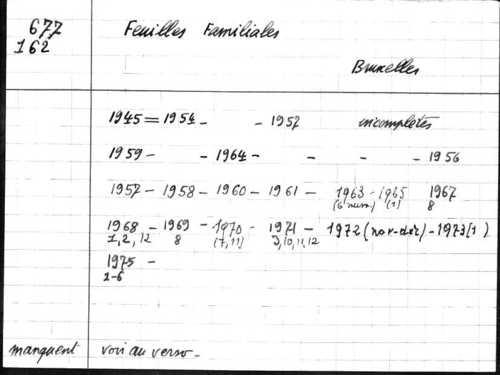 677 Feuilles Familiales
162
Bruxelles
1945 = 1954 - - 1957 incomplètes
1959 - - 1964 - - - - 1956
1957 - 1958 - 1960 - 1961 - 1963 - 1965 1967
(6 num.) (1) 8
1968 - 1969 - 1970 - 1971 - 1972 (nov-déc) - 1973 (1)
1,2,12 8 (7,11) 9,10,11,12
1975 -
1-6
manquent voir au verso -